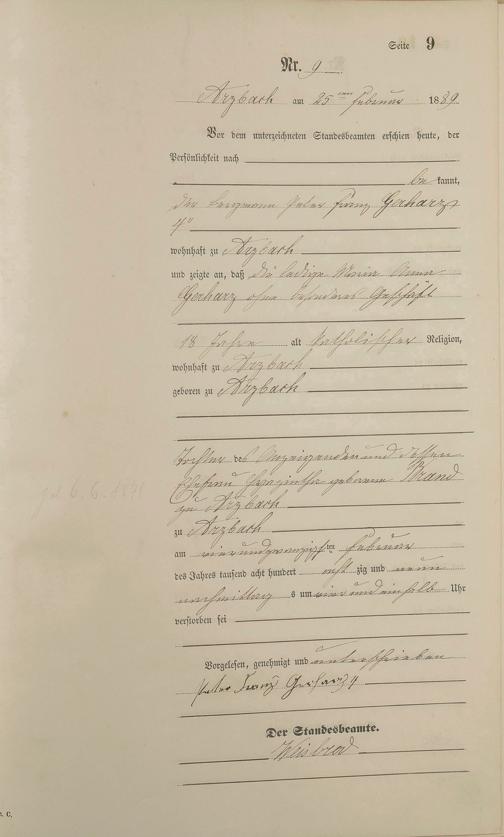 Seite 9
Nr. 9
Arzbach am 25ten Februar 1889
Vor dem unterzeichneten Standesbeamten erschien heute, der
Persönlichkeit nach
be kannt,
der Bergmann Peter Franz Gerharz
4te
wohnhaft zu Arzbach
und zeigte an, daß die ledige Maria Anna
Gerharz ohne besonderes Geschäft
18 Jahre alt katholischer Religion,
wohnhaft zu Arzbach
geboren zu Arzbach
Tochter des Anzeigenden und dessen
Ehefrau geborene Brand
zu Arzbach
zu Arzbach
am vierundzwanzigsten Februar
des Jahres tausend acht hundert acht zig und neun
nachmittags um vier und einhalb Uhr
verstorben sei
Vorgelesen, genehmigt und unterschrieben
Peter Franz Gerharz 4
Der Standesbeamte.
Weisbrod